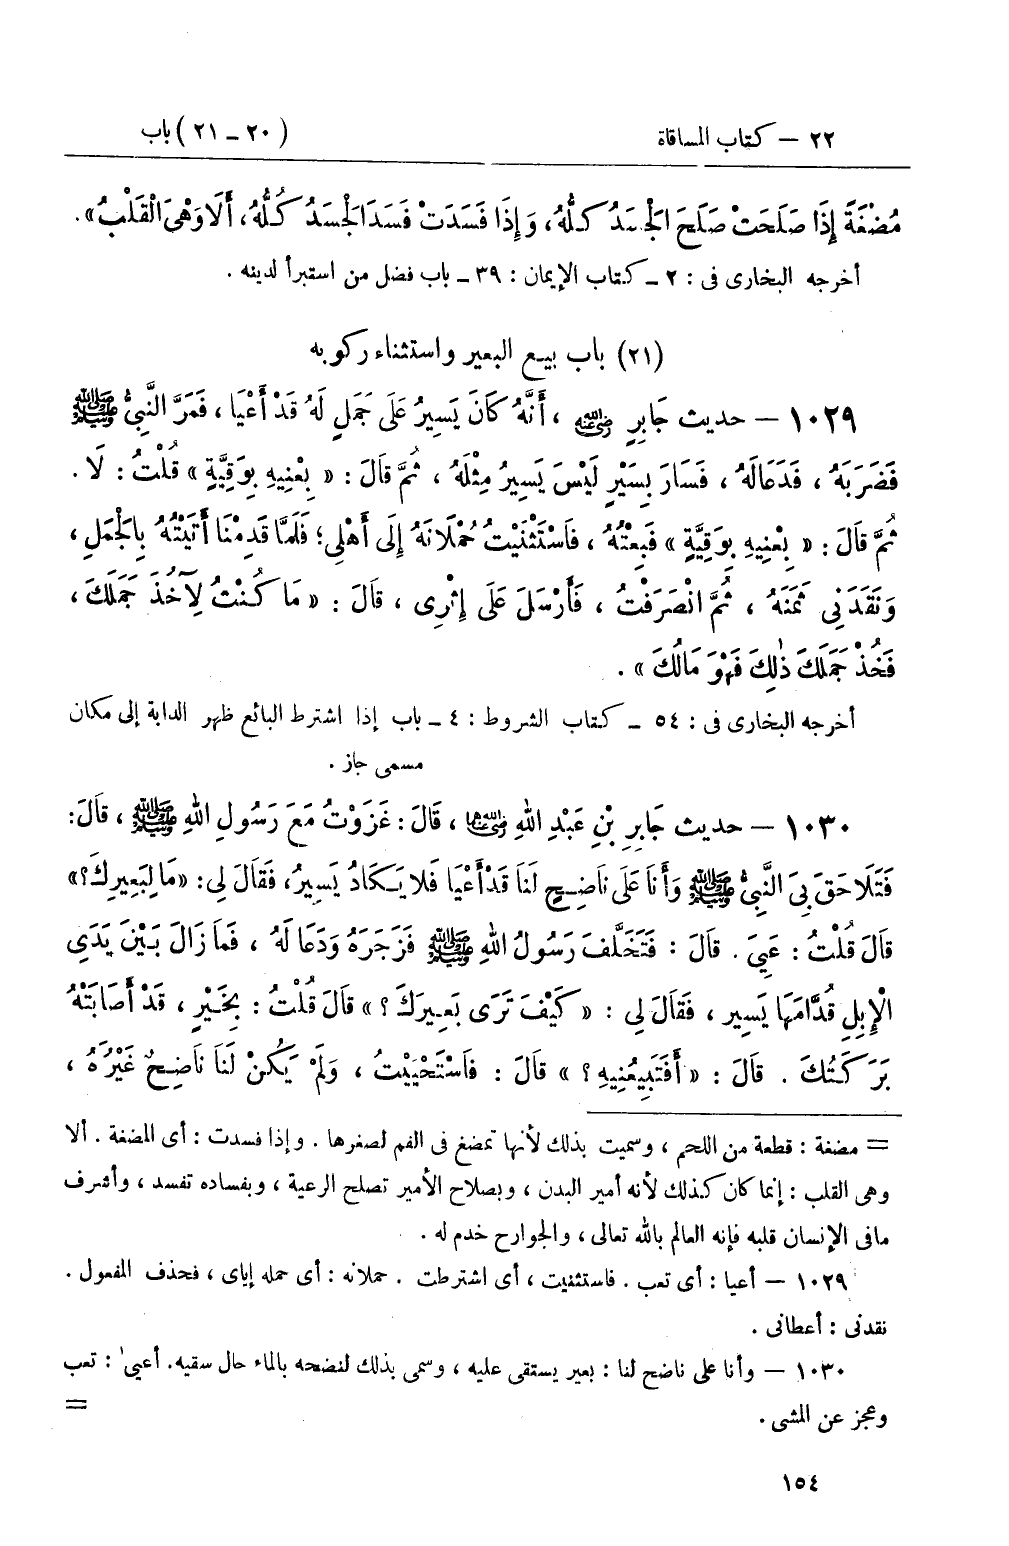 ٢٢ – كتاب المساقاة (٢٠ – ٢١) باب
مُضْغَةً إِذَا صَلَحَتْ صَلَحَ الْجَسَدُ كُلُّهُ، وَإِذَا فَسَدَتْ فَسَدَ الْجَسَدُ كُلُّهُ، أَلَا وَهْىَ الْقَلْبُ».
أخرجه البخارى فى : ٢ – كتاب الإيمان : ٣٩ – باب فضل من استبرأ لدينه .
(٢١) باب بيع البعير واستثناء ركوبه
١٠٢٩ – حديث جَابِرٍ رضي الله عنه ، أَنَّهُ كَانَ يَسِيرُ عَلَى جَمَلٍ لَهُ قَدْ أَعْيَا ، فَمَرَّ النَّبِىُّ ﷺ
فَضَرَبَهُ ، فَدَعَا لَهُ ، فَسَارَ بِسَيْرٍ لَيْسَ يَسِيرُ مِثْلَهُ ، ثُمَّ قَالَ : « بِعْنِيهِ بِوَقِيَّةٍ » قُلْتُ : لَا .
ثُمَّ قَالَ : « بِعْنِيهِ بِوَقِيَّةٍ » فَبِعْتُهُ ، فَاسْتَثْنَيْتُ حُمْلَانَهُ إِلَى أَهْلِى ؛ فَلَمَّا قَدِمْنَا أَتَيْتُهُ بِالْجَمَلِ ،
وَنَقَدَنِى ثَمَنَهُ ، ثُمَّ انْصَرَفْتُ ، فَأَرْسَلَ عَلَى إِثْرِى ، قَالَ : « مَا كُنْتُ لِآخُذَ جَمَلَكَ ،
فَخُذْ جَمَلَكَ ذٰلِكَ فَهْوَ مَالُكَ » .
أخرجه البخارى فى : ٥٤ – كتاب الشروط : ٤ – باب إذا اشترط البائع ظهر الدابة إلى مكان
مسمى جاز .
١٠٣٠ – حديث جَابِرِ بْنِ عَبْدِ اللهِ رضي الله عنهما ، قَالَ : غَزَوْتُ مَعَ رَسُولِ اللهِ ﷺ ، قَالَ :
فَتَلَاحَقَ بِىَ النَّبِىُّ ﷺ وَأَنَا عَلَى نَاضِحٍ لَنَا قَدْ أَعْيَا فَلَا يَكَادُ يَسِيرُ، فَقَالَ لِى : «مَا لِبَعِيرِكَ؟»
قَالَ قُلْتُ : عَيِىَ . قَالَ : فَتَخَلَّفَ رَسُولُ اللهِ ﷺ فَزَجَرَهُ وَدَعَا لَهُ ، فَمَا زَالَ بَيْنَ يَدَىِ
الْإِبِلِ قُدَّامَهَا يَسِير ، فَقَالَ لِى : « كَيْفَ تَرَى بَعِيرَكَ ؟ » قَالَ قُلْتُ : بِخَيْرٍ ، قَدْ أَصَابَتْهُ
بَرَكَتُكَ . قَالَ : « أَفَتَبِيعُنِيهِ ؟ » قَالَ : فَاسْتَحْيَيْتُ ، وَلَمْ يَكُنْ لَنَا نَاضِحٌ غَيْرُهُ ،
= مضغة : قطعة من اللحم ، وسميت بذلك لأنها تمضغ فى الفم لصغرها . وإذا فسدت : أى المضغة . ألا
وهى القلب : إنما كان كذلك لأنه أمير البدن ، وبصلاح الأمير تصلح الرعية ، وبفساده تفسد ، وأشرف
مافى الإنسان قلبه فإنه العالم بالله تعالى ، والجوارح خدم له .
١٠٢٩ – أعيا : أى تعب . فاستثنيت ، أى اشترطت . حملانه : أى حمله إياى ، فحذف المفعول .
نقدنى : أعطانى .
١٠٣٠ – وأنا على ناضح لنا : بعير يستقى عليه ، وسمى بذلك لنضحه بالماء حال سقيه. أعيى : تعب
وعجز عن المشى .
=
١٥٤